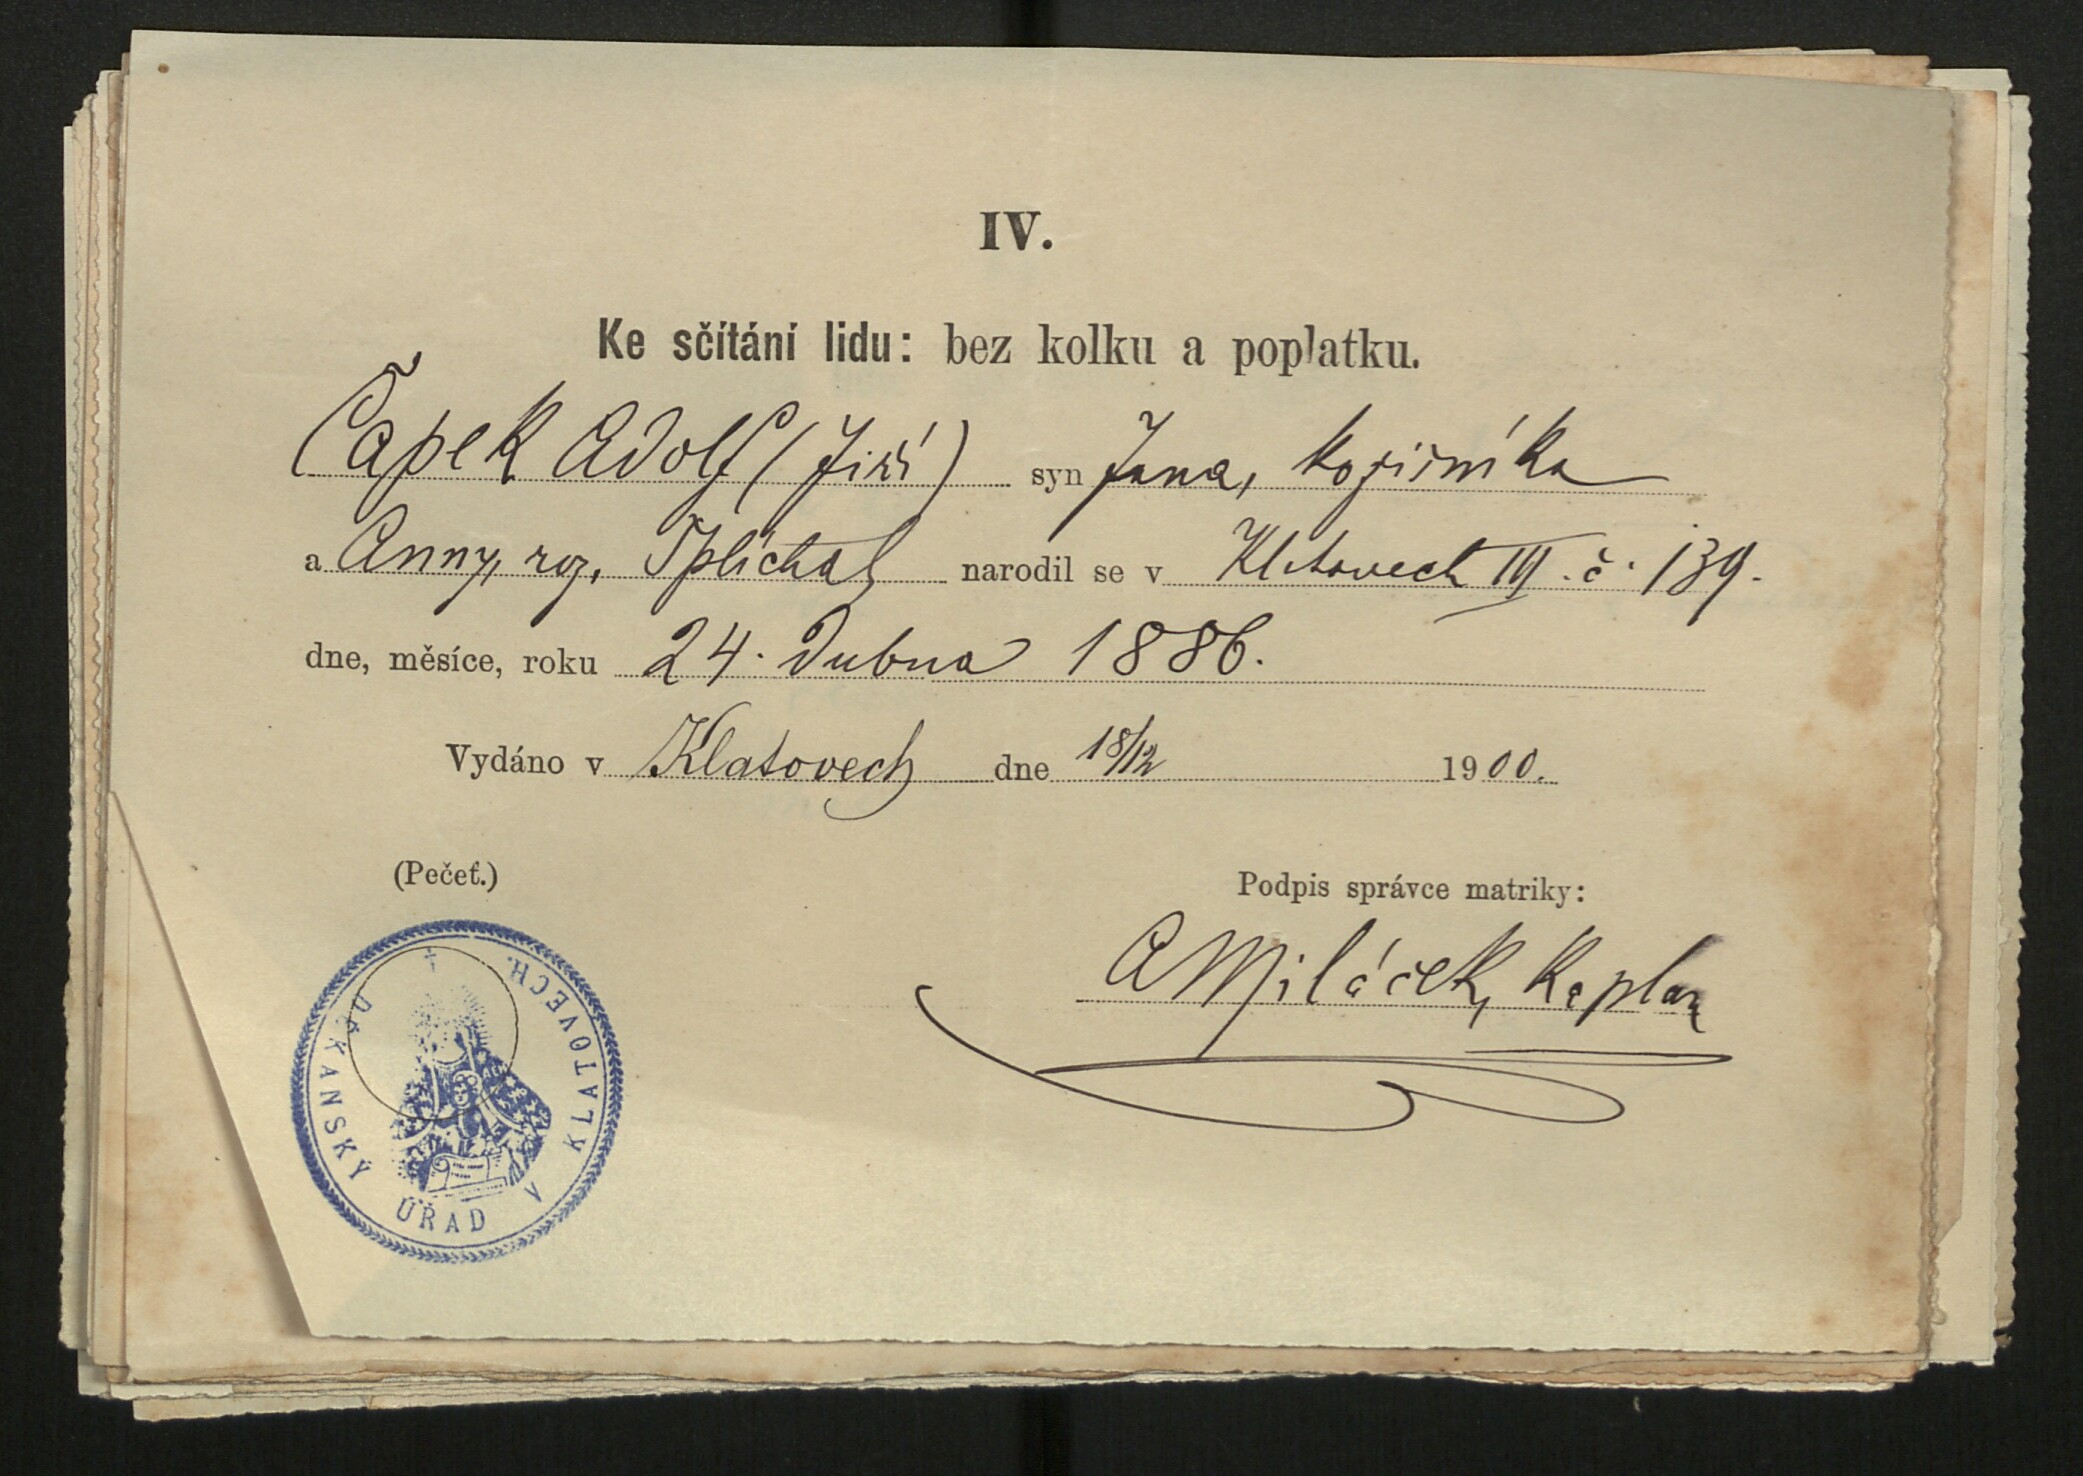 IV.
Ke sčítání lidu: bez kolku a poplatku.
Čapek Adolf (Jiří) syn Jana, kočírníka
a Anny, roz. Šplíchal narodil se v Klatovech IV. č. 139.
dne, měsíce, roku 24. dubna 1886.
Vydáno v Klatovech dne 18/12 1900.
(Pečeť.)
Podpis správce matriky:
A Miláček, kaplan
DĚKANSKÝ ÚŘAD V KLATOVECH.